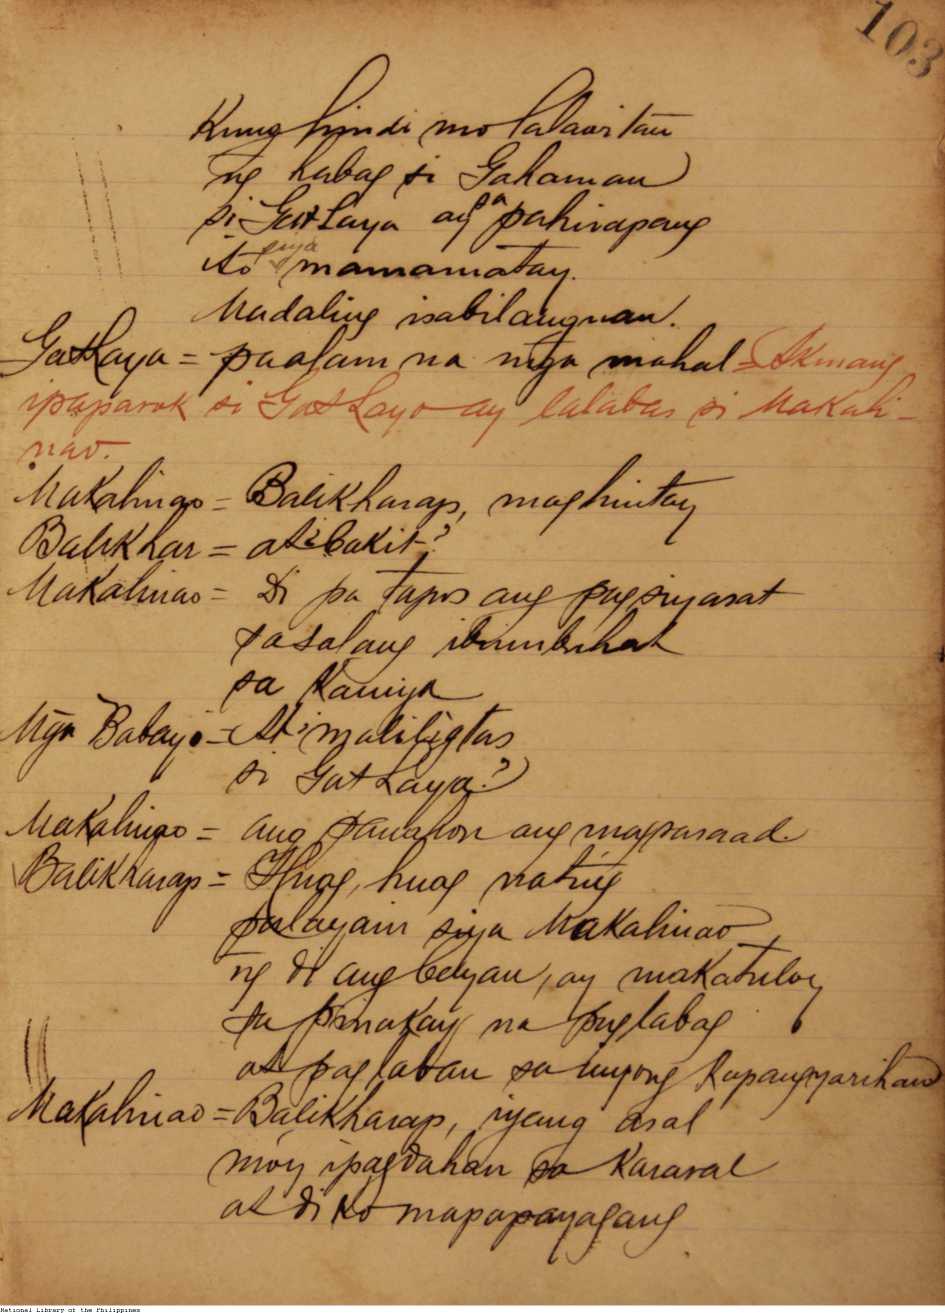 103
Kung hindi mo lalawitan
ng habag si Gahaman
si GatLaya ay sa pahirapang
ito siya mamamatay.
Madaling isabilangguan.
GatLaya = paalam na mga mahal = Akmang
ipapasok si GatLaya ay lalabas si Makali-
nao.
Makalinao = Balikharap, maghintay
Balikhar = at bakit?
Makalinao = Di pa tapos ang pagsiyasat
sa salang ibinubuhat
sa kaniya
Mga Babayi = At maliligtas
si GatLaya?
Makalinao = ang panahon ang magsasaad.
Balikharap = Huag, huag nating
palayain siya Makalinao
ng di ang bayan, ay makatuloy
sa pag labag
at pag laban sa inyong kapangyarihan
Makalinao = Balikharap, iyang asal
moy ipagdahan sa
at di ko mapapayagang
National Library of the Philippines